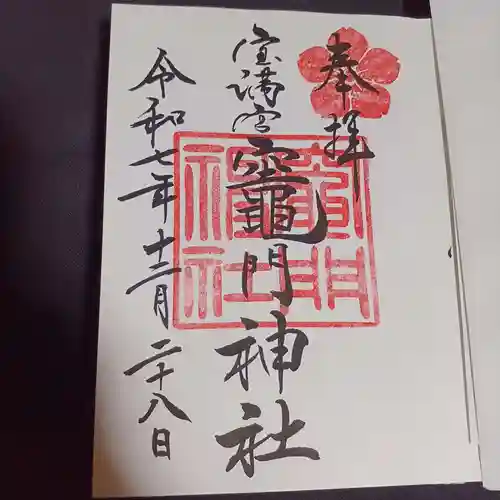 奉拝
宝満宮竈門神社
竈門神社
令和七年十二月二十八日